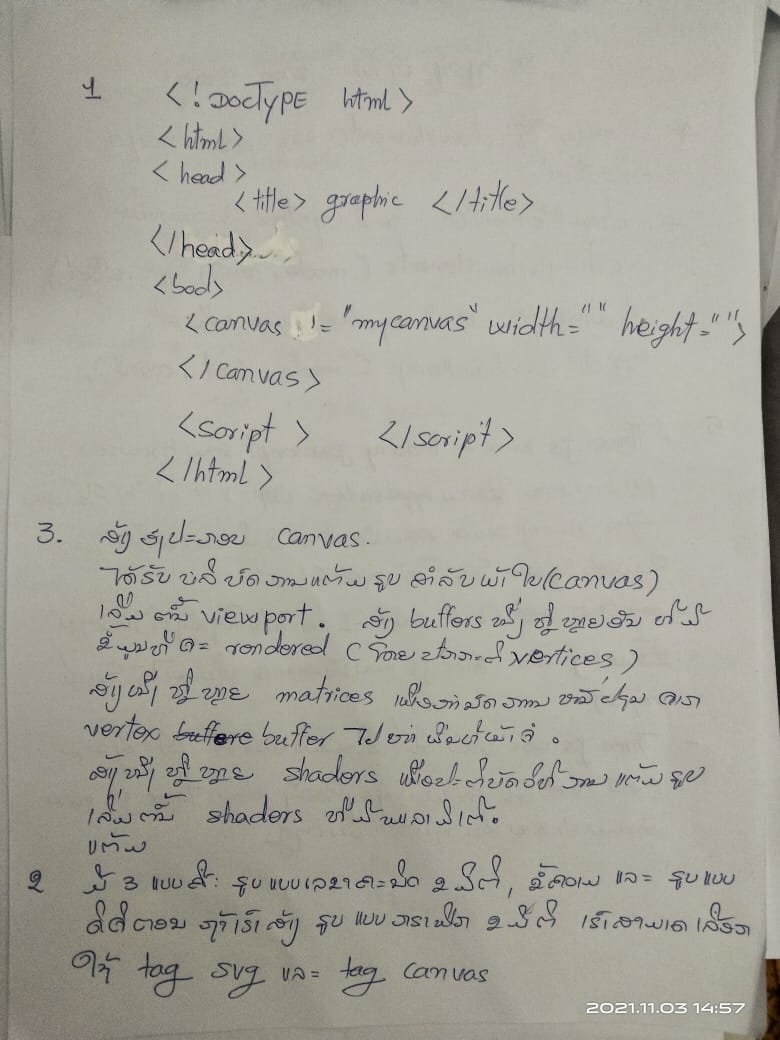 1 <!DOCTYPE html>
<html>
<head>
<title> graphic </title>
</head>
<body>
<canvas = "mycanvas" width="" height="">
</canvas>
<script > </script>
</html>
3. ສ້າງ ອົງປະກອບ canvas.
ໄດ້ຮັບ ບໍລິບົດ ການແຕ້ມ ຮູບ ສຳລັບ ຜ້າໃບ(canvas)
ເລີ່ມ ຕົ້ນ viewport. ສ້າງ buffers ໜຶ່ງ ຫຼື ຫຼາຍອັນ ທີ່ມີ
ຂໍ້ມູນທີ່ຈະ rendered (ໂດຍ ປົກກະຕິ vertices)
ສ້າງໜຶ່ງ ຫຼື ຫຼາຍ matrices ເພື່ອກຳນົດ ການ ຫັນປ່ຽນ ຈາກ
vertex buffer ໄປຫາ ພື້ນທີ່ໜ້າຈໍ.
ສ້າງໜຶ່ງ ຫຼື ຫຼາຍ shaders ເພື່ອປະຕິບັດວິທີ ການ ແຕ້ມ ຮູບ
ເລີ່ມ ຕົ້ນ shaders ທີ່ມີ
ແຕ້ມ
2 ມີ 3 ແບບຄື: ຮູບ ແບບເລຂາຄະນິດ 2 ມິຕິ, ຂໍ້ຄວາມ ແລະ ຮູບແບບ
ຖ້າເຮົາສ້າງ ຮູບ ແບບ ກຣາຟິກ 2 ມິຕິ ເຮົາສາມາດ ເລືອກ
ໃຊ້ tag svg ແລະ tag canvas
2021.11.03 14:57